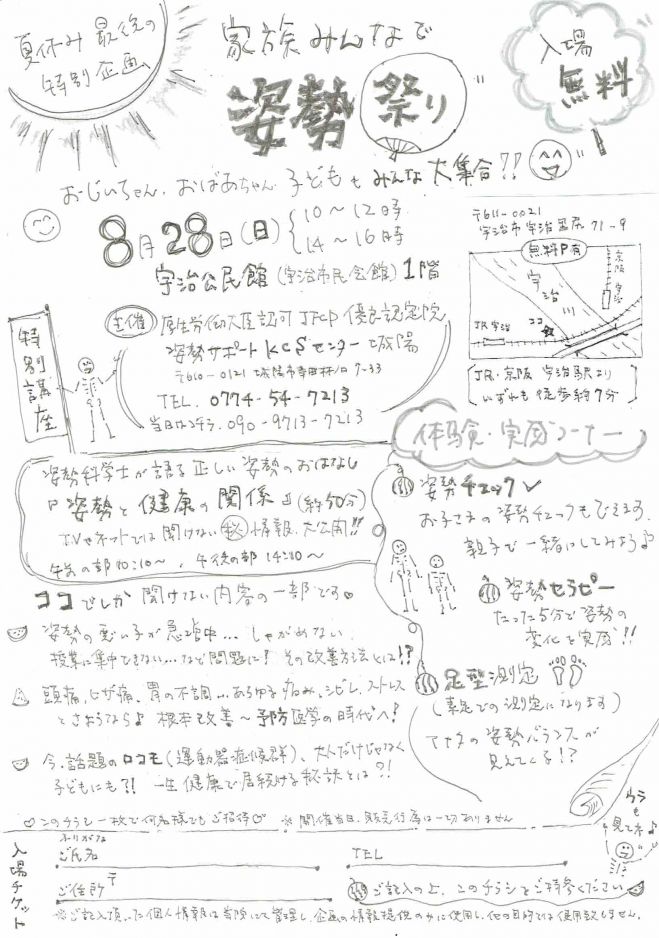 夏休み最後の
特別企画
家族みんなで
姿勢祭り
入場
無料
おじいちゃん、おばあちゃん 子どもも みんな大集合!!
8月28日(日)
10〜12時
14〜16時
宇治公民館(宇治市民会館)1階
〒611-0021
宇治市宇治里尻 71-9
無料P有
宇治川
京阪
宇治
JR宇治
ココ
JR・京阪 宇治駅より
いずれも徒歩約7分
主催
厚生労働大臣認可 JFCP 優良認定院
姿勢サポート KCSセンター城陽
〒610-0121 城陽市寺田林ノ口 7-33
TEL. 0774-54-7213
当日はコチラ. 090-9713-7213
特別講座
姿勢科学士が語る正しい姿勢のおはなし
『姿勢と健康の関係』(約50分)
TVやネットでは聞けない㊙情報、大公開!!
午前の部10:10〜、午後の部14:10〜
体験・実感コーナー
姿勢チェック✓
お子さまの姿勢チェックもできます。
親子で一緒にしてみよう♪
姿勢セラピー
たった5分で姿勢の
変化を実感!!
足型測定
(素足での測定になります)
アナタの姿勢バランスが
見えてくる!?
ココでしか聞けない内容の一部です♡
姿勢の悪い子が急増中… しゃがめない
授業に集中できない…など問題に! その改善方法とは!?
頭痛、ヒザ痛、胃の不調…あらゆる痛み、シビレ、ストレス
とさようなら♪ 根本改善〜予防医学の時代へ!
今、話題のロコモ(運動器症候群)、大人だけじゃなく
子どもにも?! 一生健康で居続ける秘訣とは?!
♡このチラシ一枚で何名様でもご招待♡ ※開催当日、販売行為は一切ありません
ウラも
見てネ♪
入場チケット
ふりがな
ご氏名
TEL
ご住所 〒
ご記入の上、このチラシをご持参ください
※ご記入頂いた個人情報は当院にて管理し、企画の情報提供のみに使用し、他の目的では使用致しません。